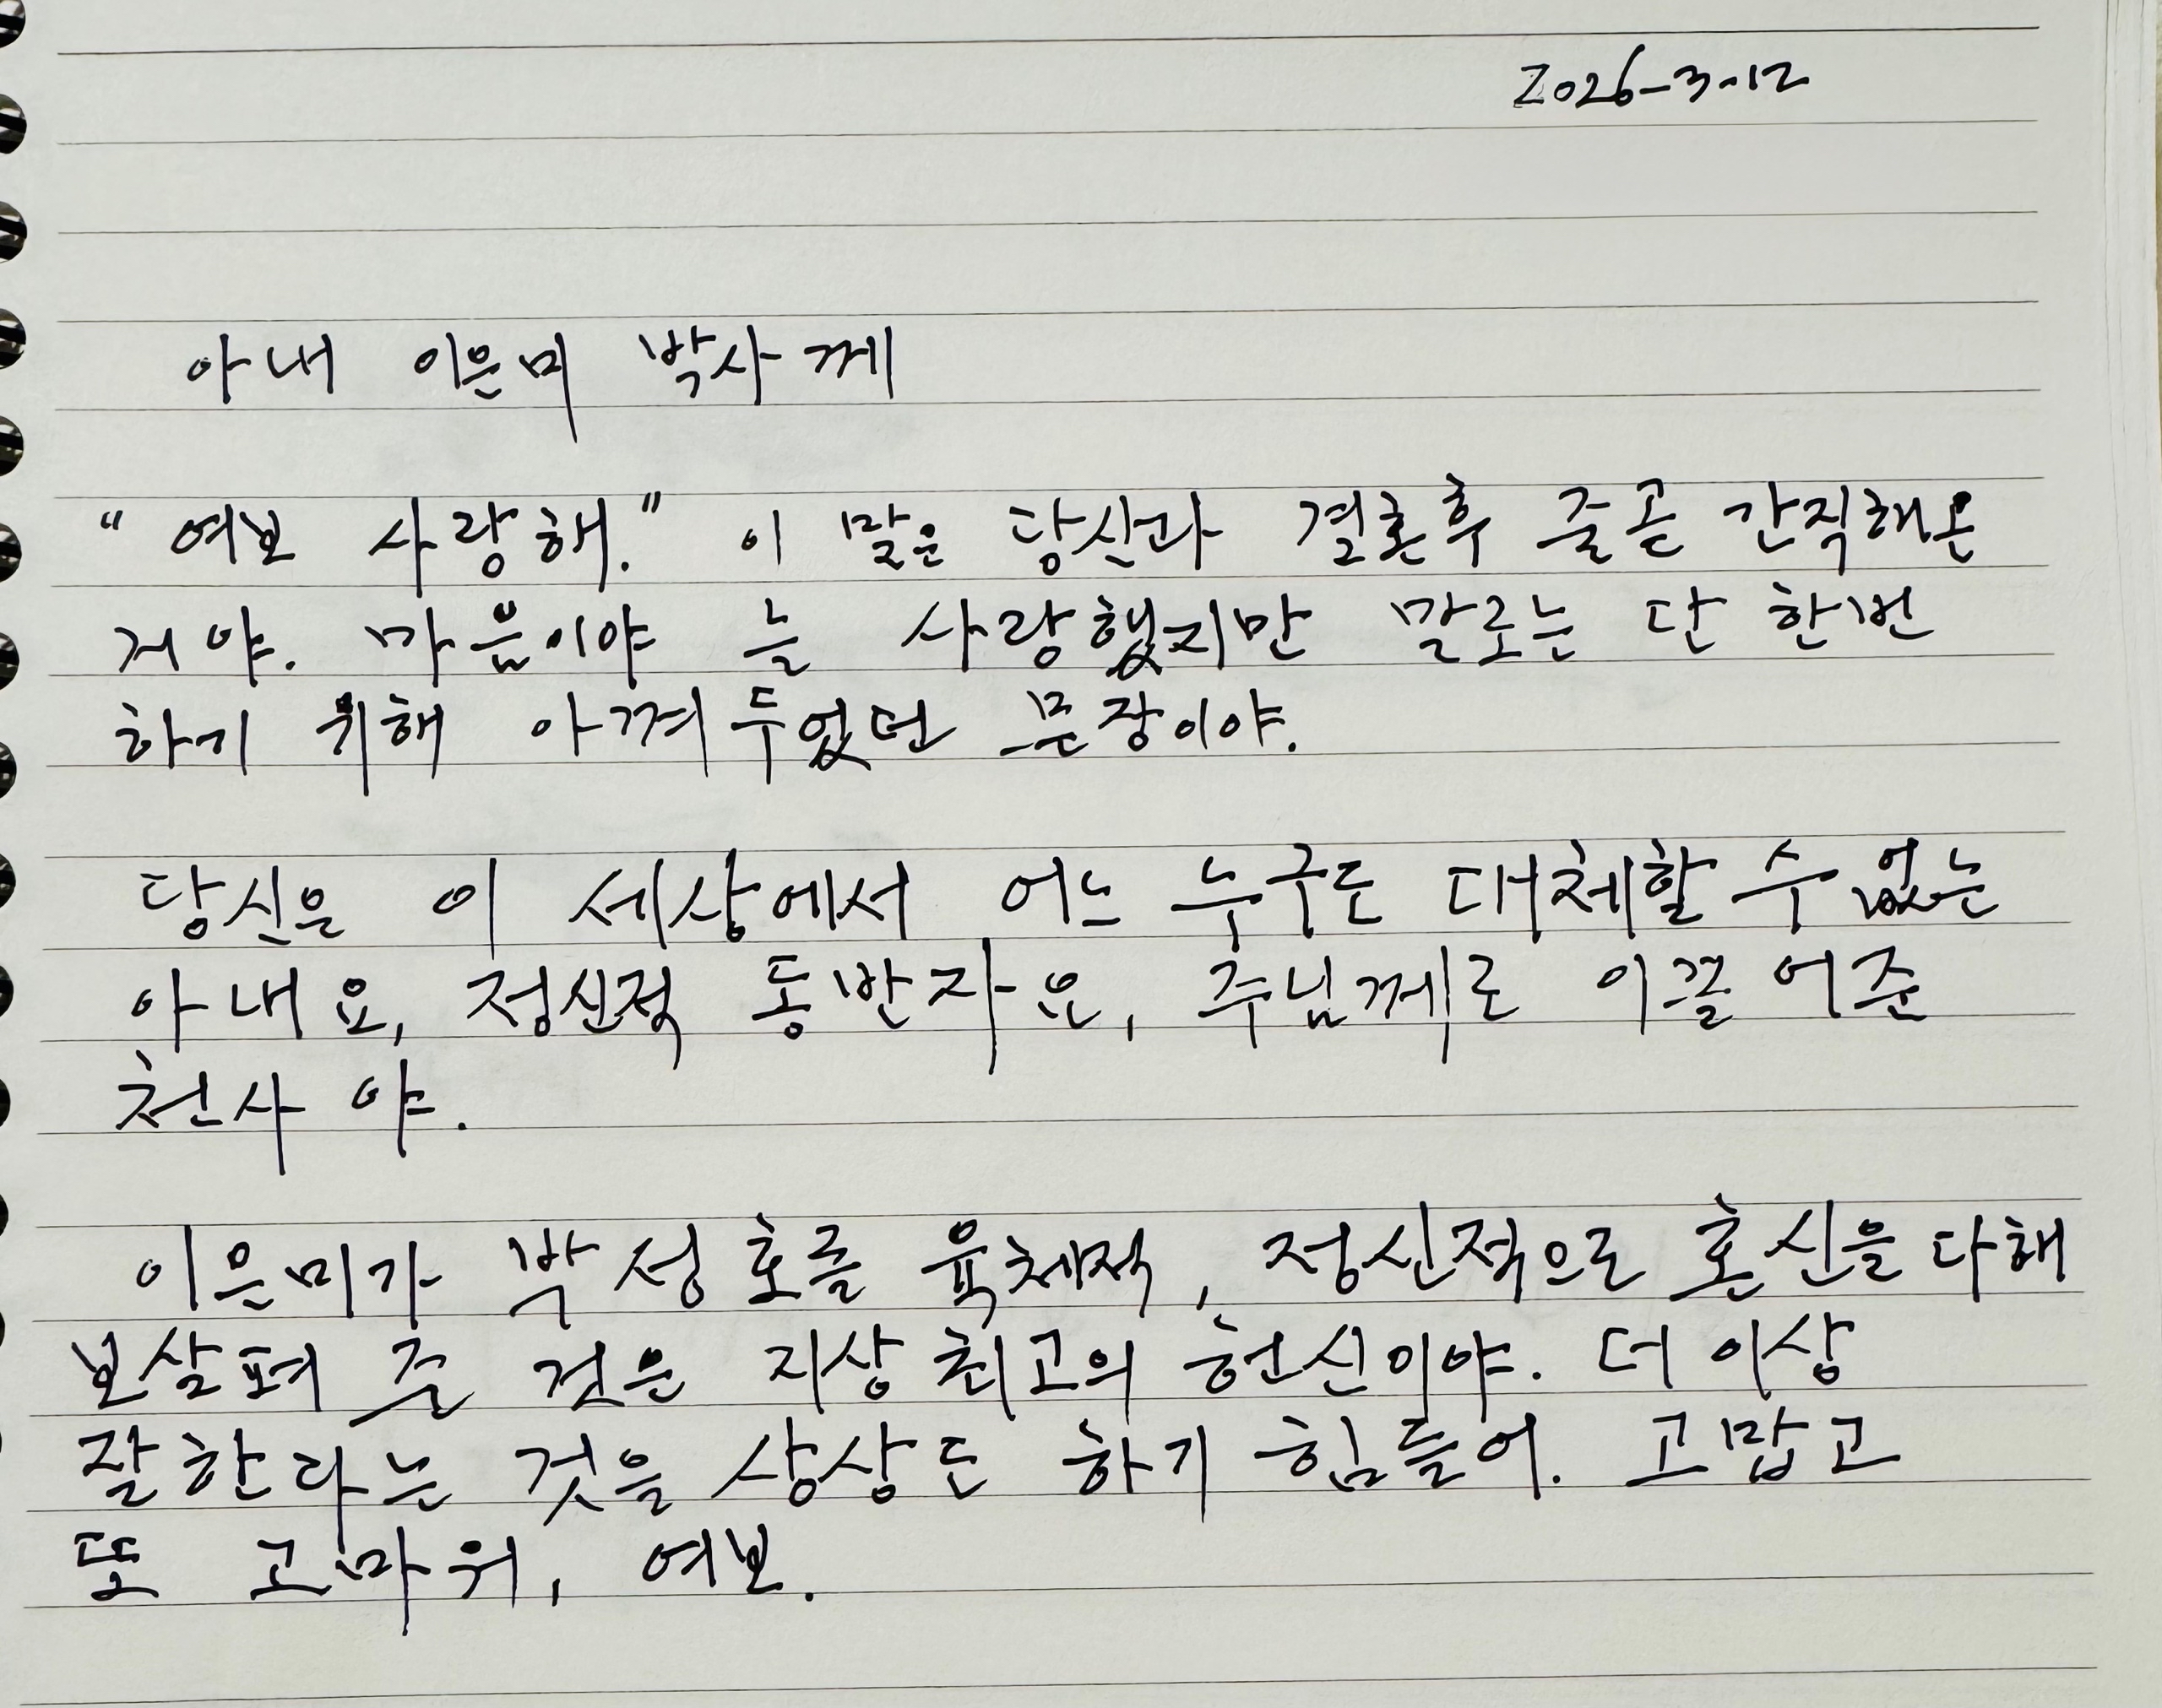 2026-3-12
아내 이은미 박사께
"여보 사랑해." 이 말은 당신과 결혼후 줄곧 간직해온
거야. 마음이야 늘 사랑했지만 말로는 단 한번
하기 위해 아껴두었던 문장이야.
당신은 이 세상에서 어느 누구도 대체할 수 없는
아내요, 정신적 동반자요, 주님께로 이끌어준
천사야.
이은미가 박성호를 육체적, 정신적으로 혼신을 다해
보살펴 준 것은 지상 최고의 헌신이야. 더 이상
잘한다는 것을 상상도 하기 힘들어. 고맙고
또 고마워, 여보.